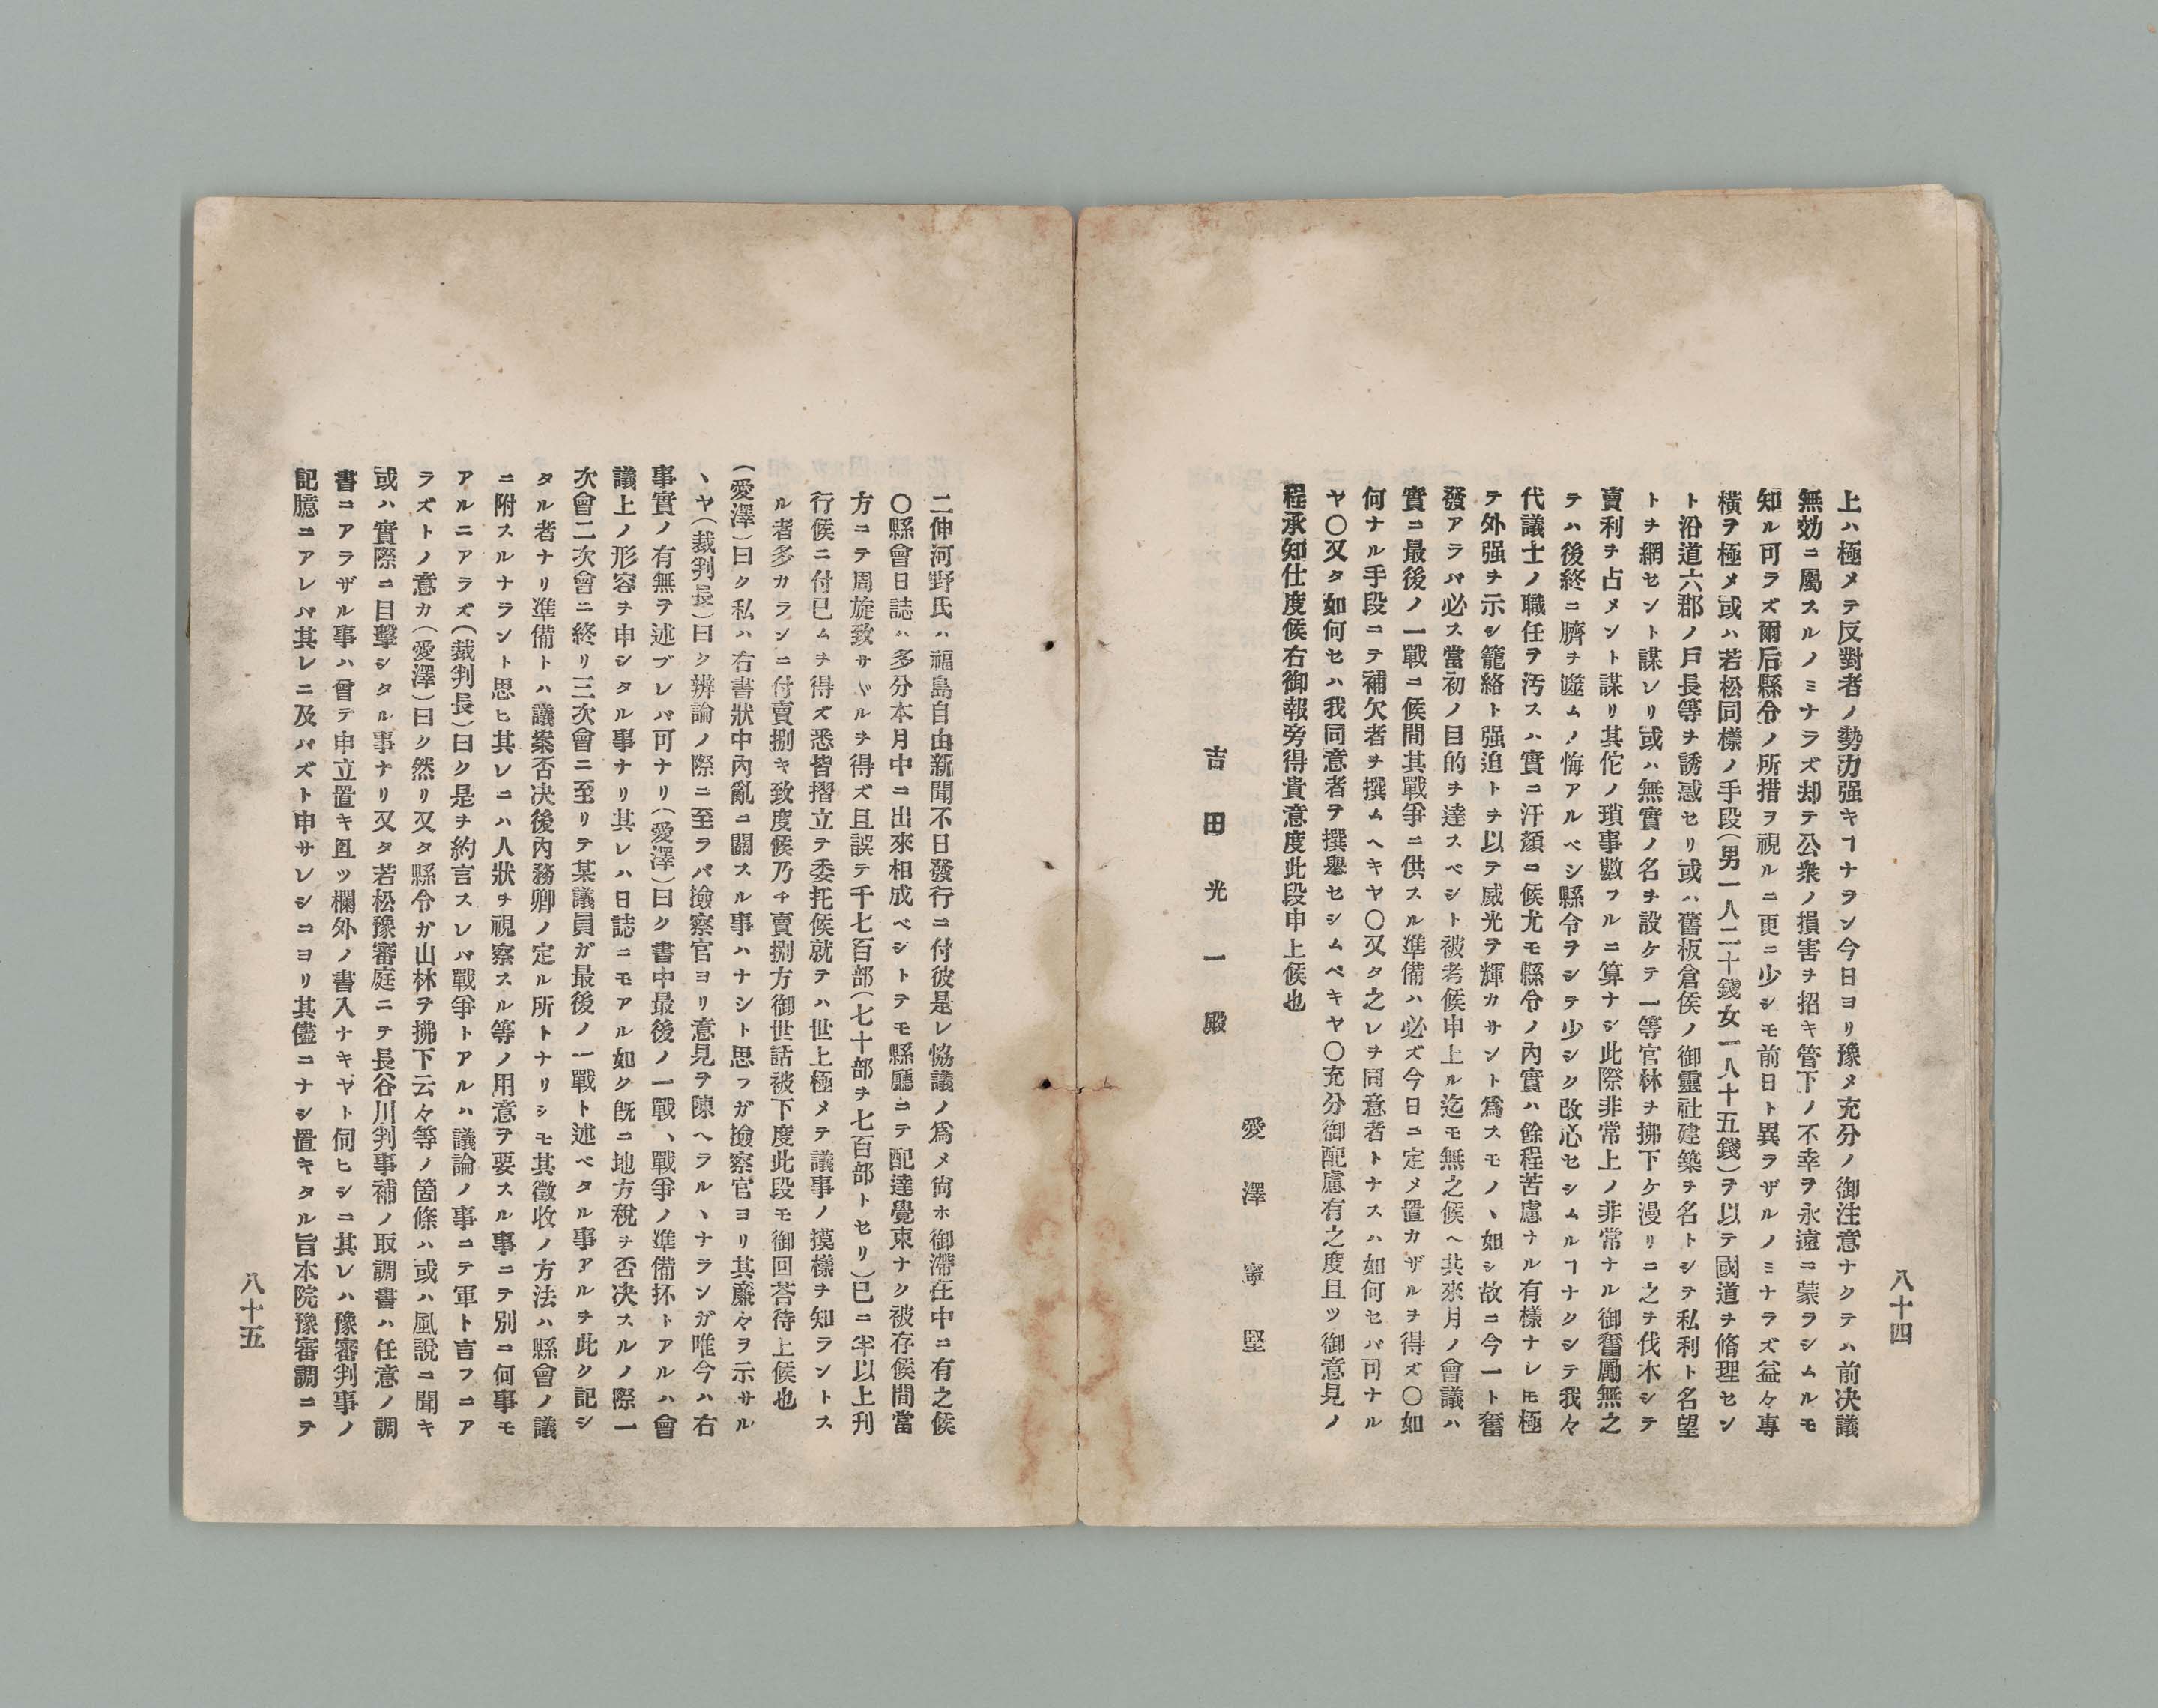 八十四
上ハ極メテ反對者ノ勢力强キヿナラン今日ヨリ豫メ充分ノ御注意ナクテハ前决議
無効ニ屬スルノミナラズ却テ公衆ノ損害ヲ招キ管下ノ不幸ヲ永遠ニ蒙ラシムルモ
知ル可ラズ爾后縣令ノ所措ヲ視ルニ更ニ少シモ前日ト異ラザルノミナラズ益々專
橫ヲ極メ或ハ若松同樣ノ手段(男一人二十錢女一人十五錢)ヲ以テ國道ヲ脩理セン
ト沿道六郡ノ戶長等ヲ誘惑セリ或ハ舊板倉侯ノ御靈社建築ヲ名トシテ私利ト名望
トヲ網セント謀レリ或ハ無實ノ名ヲ設ケテ一等官林ヲ拂下ケ漫リニ之ヲ伐木シテ
賣利ヲ占メント謀リ其佗ノ瑣事數フルニ算ナシ此際非常上ノ非常ナル御奮勵無之
テハ後終ニ臍ヲ噬ムノ悔アルベシ縣令ヲシテ少シク改心セシムルヿナクシテ我々
代議士ノ職任ヲ汚スハ實ニ汗顏ニ候尤モ縣令ノ內實ハ餘程苦慮ナル有樣ナレ𪜈極
テ外强ヲ示シ籠絡ト强迫トヲ以テ威光ヲ輝カサント爲スモノヽ如シ故ニ今一ト奮
發アラバ必ス當初ノ目的ヲ達スベシト被考候申上ル迄モ無之候ヘ共來月ノ會議ハ
實ニ最後ノ一戰ニ候間其戰爭ニ供スル準備ハ必ズ今日ニ定メ置カザルヲ得ズ〇如
何ナル手段ニテ補欠者ヲ撰ムヘキヤ〇又タ之レヲ同意者トナスハ如何セバ可ナル
ヤ〇又タ如何セハ我同意者ヲ撰擧セシムベキヤ〇充分御配慮有之度且ツ御意見ノ
程承知仕度候右御報旁得貴意度此段申上候也
愛澤寧堅
吉田光一殿
二伸河野氏ハ福島自由新聞不日發行ニ付彼是レ恊議ノ爲メ尙ホ御滯在中ニ有之候
〇縣會日誌ハ多分本月中ニ出來相成ベシトテモ縣廳ニテ配達覺束ナク被存候間當
方ニテ周旋致サヾルヲ得ズ且誤テ千七百部(七十部ヲ七百部トセリ)已ニ半以上刊
行候ニ付已ムヲ得ズ悉皆摺立テ委托候就テハ世上極メテ議事ノ摸樣ヲ知ラントス
ル者多カランニ付賣捌キ致度候乃チ賣捌方御世話被下度此段モ御回荅待上候也
(愛澤)曰ク私ハ右書狀中內亂ニ關スル事ハナシト思フガ撿察官ヨリ其廉々ヲ示サル
ヽヤ(裁判長)曰ク辨論ノ際ニ至ラバ撿察官ヨリ意見ヲ陳ヘラルヽナランガ唯今ハ右
事實ノ有無ヲ述ブレバ可ナリ(愛澤)曰ク書中最後ノ一戰、戰爭ノ準備抔トアルハ會
議上ノ形容ヲ申シタル事ナリ其レハ日誌ニモアル如ク旣ニ地方稅ヲ否决スルノ際一
次會二次會ニ終リ三次會ニ至リテ某議員ガ最後ノ一戰ト述ベタル事アルヲ此ク記シ
タル者ナリ準備トハ議案否决後內務卿ノ定ル所トナリシモ其徵收ノ方法ハ縣會ノ議
ニ附スルナラント思ヒ其レニハ人狀ヲ視察スル等ノ用意ヲ要スル事ニテ別ニ何事モ
アルニアラズ(裁判長)曰ク是ヲ約言スレバ戰爭トアルハ議論ノ事ニテ軍ト言フコア
ラズトノ意カ(愛澤)曰ク然リ又タ縣令ガ山林ヲ拂下云々等ノ箇條ハ或ハ風說ニ聞キ
或ハ實際ニ目擊シタル事ナリ又タ若松豫審庭ニテ長谷川判事補ノ取調書ハ任意ノ調
書ニアラザル事ハ曾テ申立置キ且ツ欄外ノ書入ナキヤト伺ヒシニ其レハ豫審判事ノ
記臆ニアレバ其レニ及バズト申サレシニヨリ其儘ニナシ置キタル旨本院豫審調ニテ
八十五